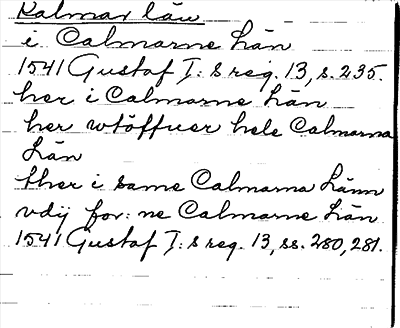 Kalmar län
i Calmarne Län
1541 Gustaf I: s reg. 13, s. 235.
her i Calmarne Län
her wtöffuer hele Calmarna
Län
ther i same Calmarna Länn
vdij for: ne Calmarne Län
1541 Gustaf I: s reg. 13, ss. 280, 281.